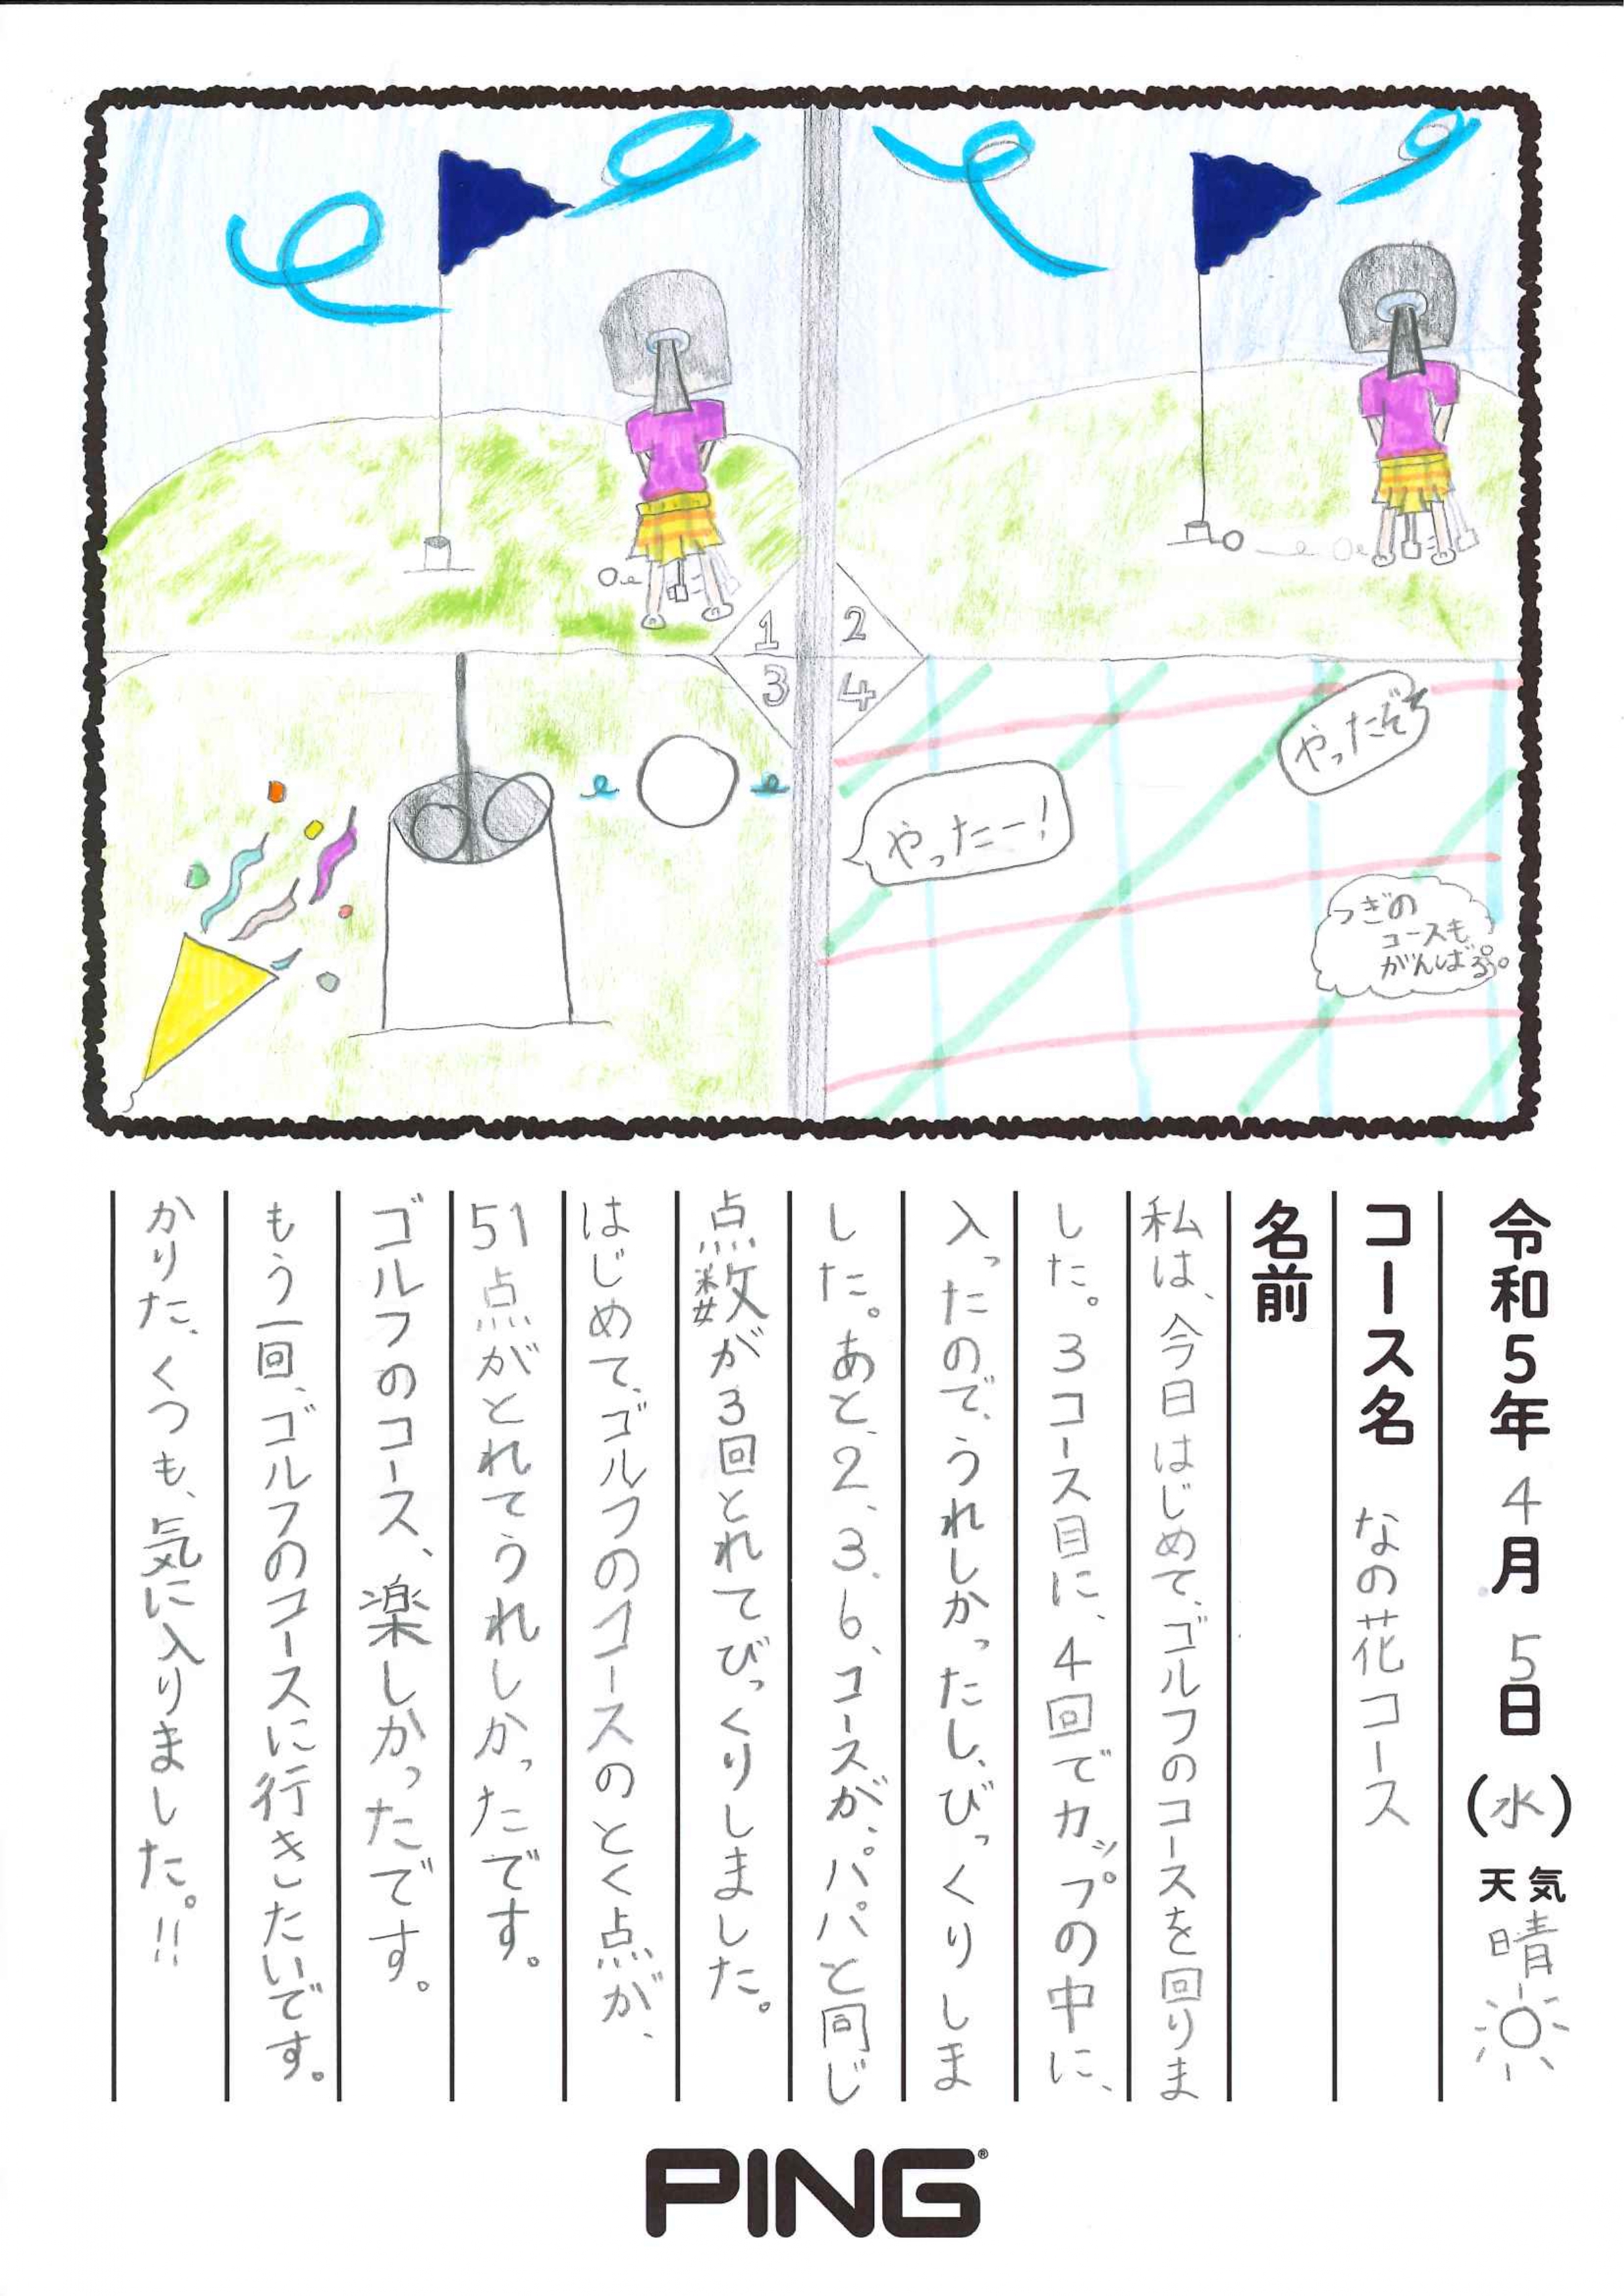 1
2
3
4
やったぞ
やったー!
つぎの
コースも
がんばろ。
令和5年4月5日(水)天気晴
コース名 なの花コース
名前
私は、今日はじめて、ゴルフのコースを回りま
した。3コース目に、4回でカップの中に、
入ったので、うれしかったし、びっくりしま
した。あと、2、3、6、コースが、パパと同じ
点数が3回とれてびっくりしました。
はじめて、ゴルフのコースのとく点が、
51点がとれてうれしかったです。
ゴルフのコース、楽しかったです。
もう一回、ゴルフのコースに行きたいです。
かりた、くつも、気に入りました。!!
PING